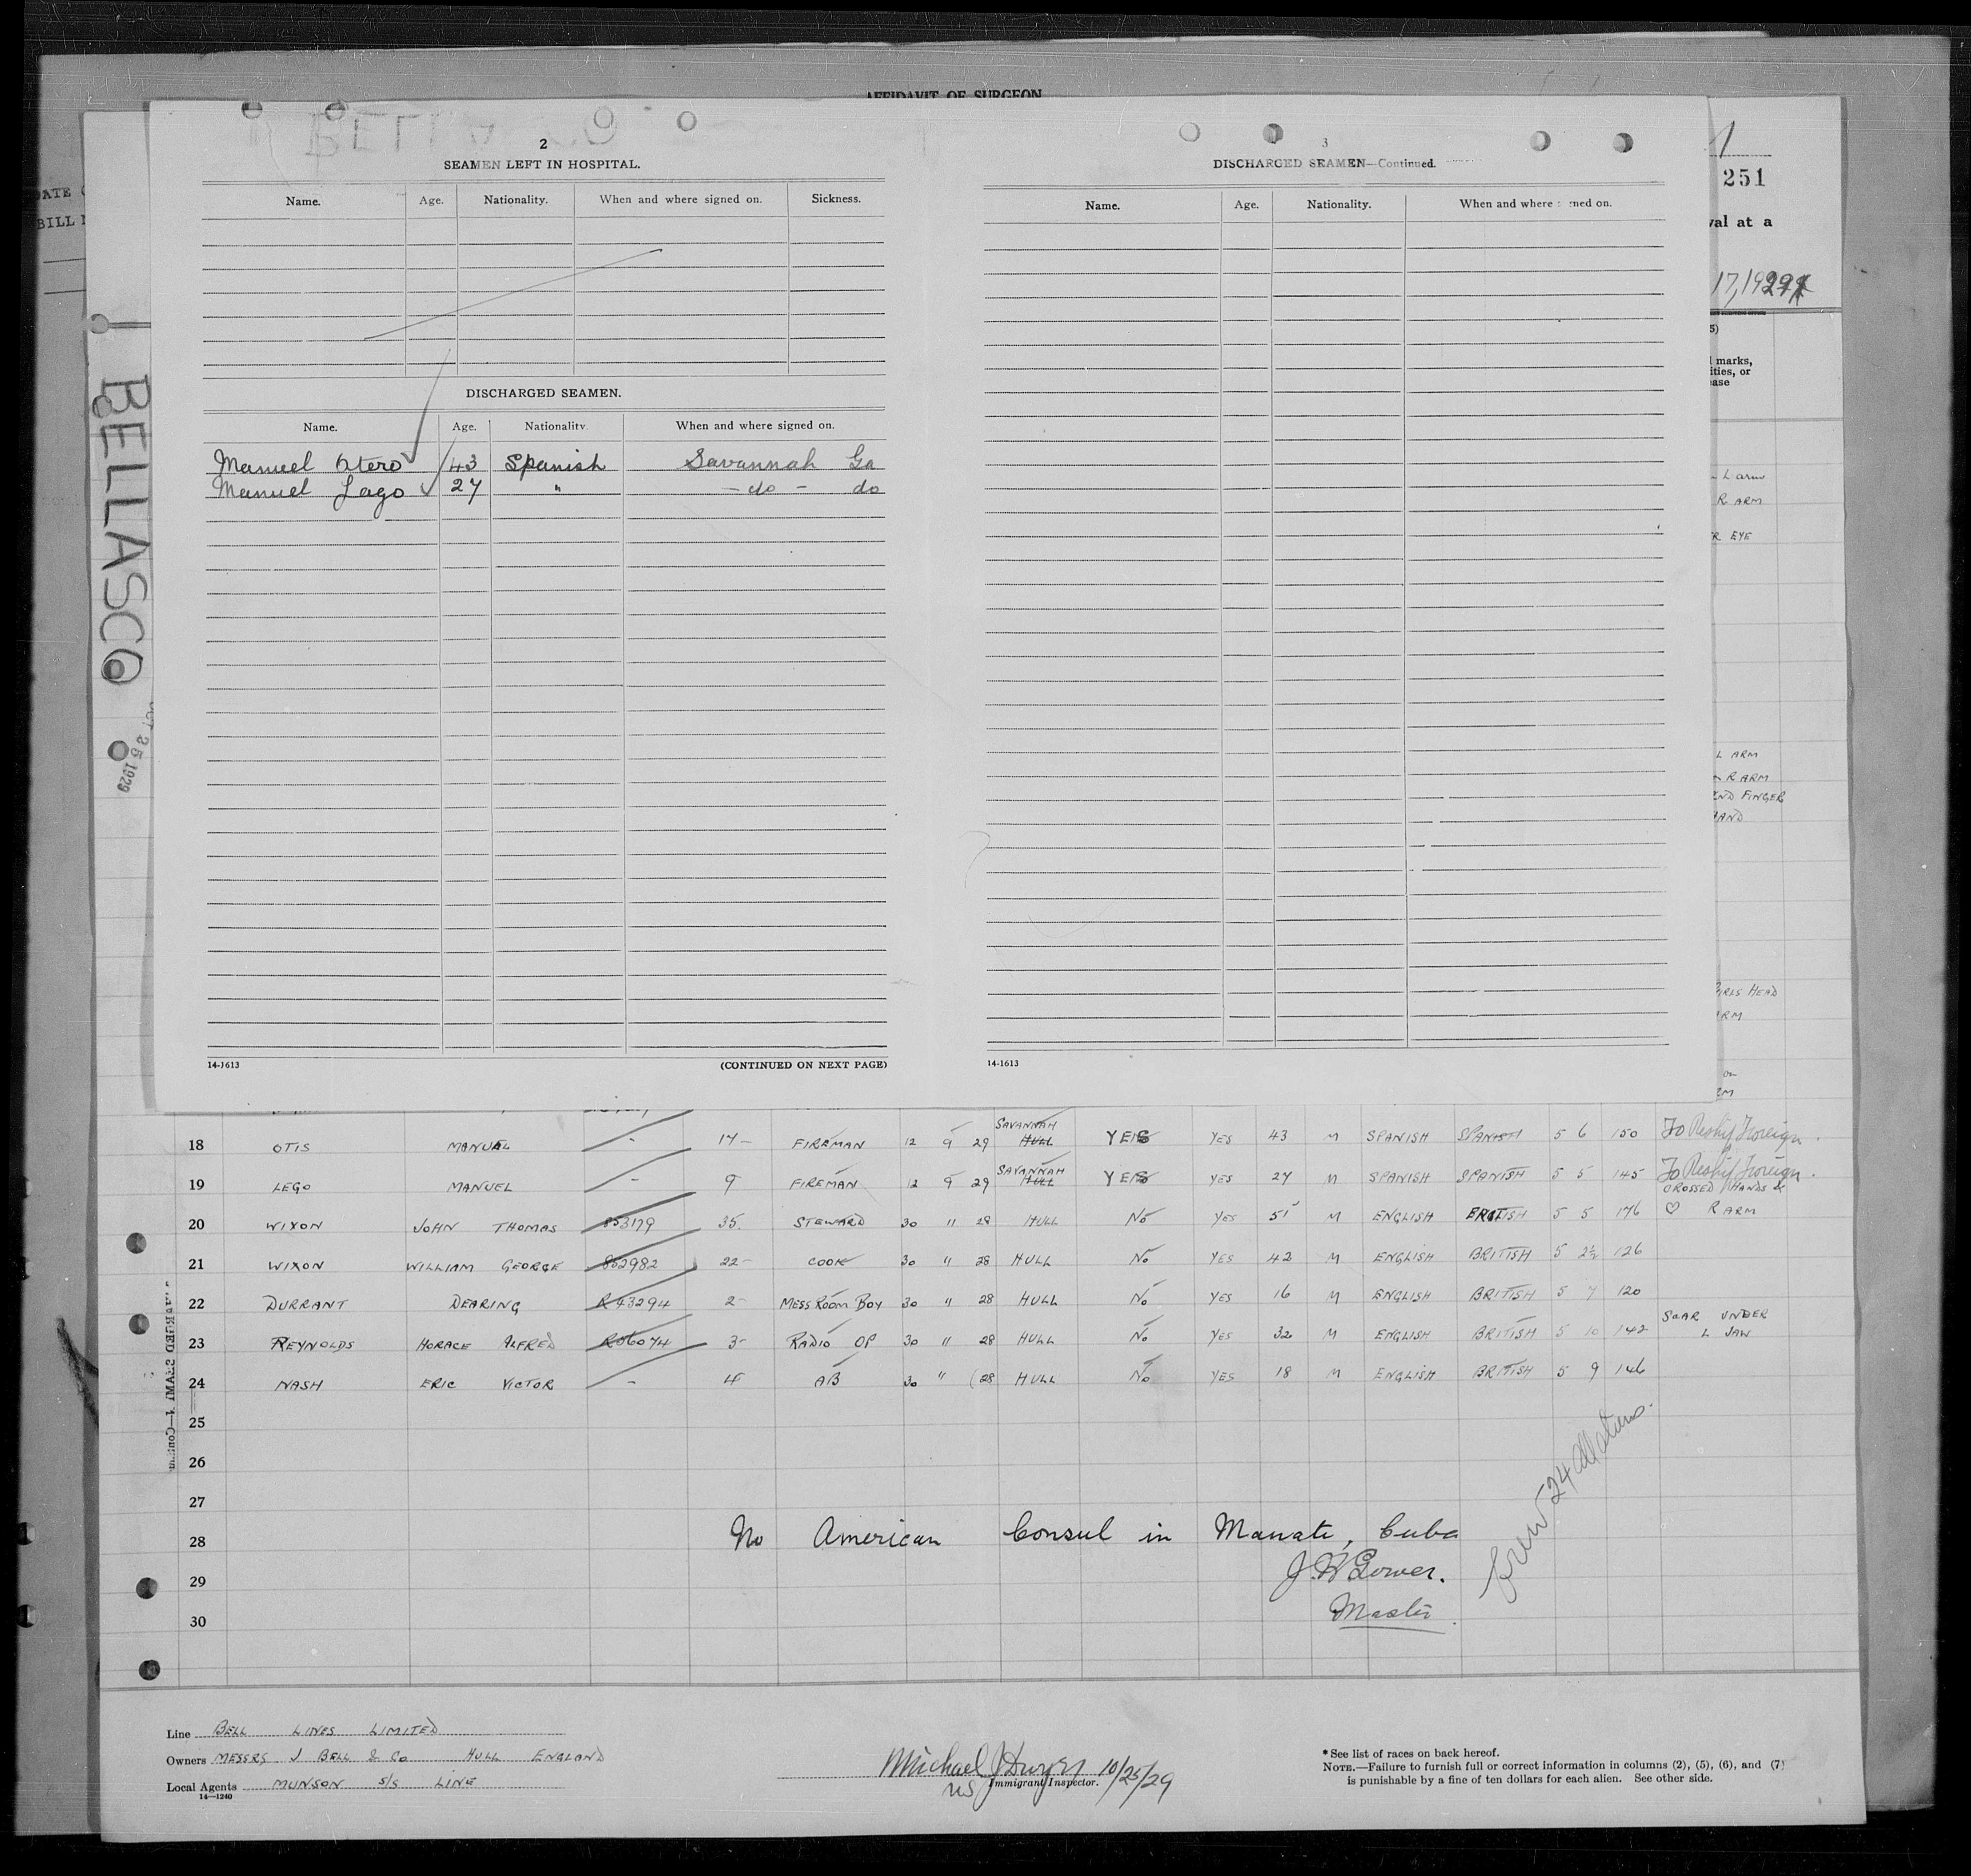 AFFIDAVIT OF SURGEON
2
SEAMEN LEFT IN HOSPITAL.
Name. Age. Nationality. When and where signed on. Sickness.
DISCHARGED SEAMEN.
Name. Age. Nationality When and where signed on.
Manuel Otero 43 Spanish Savannah Ga
Manuel Lago 27 " - do - do
14-1613 (CONTINUED ON NEXT PAGE)
3
DISCHARGED SEAMEN—Continued.
Name. Age. Nationality. When and where signed on.
14-1613
251
val at a
17, 1929
marks,
ities, or
ease
L arm
R ARM
R EYE
L ARM
R ARM
2ND FINGER
HAND
GIRLS HEAD
ARM
BELLASCO
OCT 25 1929
SAVANNAH
18 OTIS MANUEL - 17- FIREMAN 12 9 29 HULL YES YES 43 M SPANISH SPANISH 5 6 150 To Reship Foreign.
SAVANNAH
19 LEGO MANUEL - 9 FIREMAN 12 9 29 HULL YES YES 27 M SPANISH SPANISH 5 5 145 To Reship Foreign.
CROSSED HANDS &
20 WIXON JOHN THOMAS 853179 35. STEWARD 30 " 28 HULL No YES 51 M ENGLISH BRITISH 5 5 176 ♡ R ARM
21 WIXON WILLIAM GEORGE 852982 22- COOK 30 " 28 HULL No YES 42 M ENGLISH BRITISH 5 2½ 126
22 DURRANT DEARING R43294 2- MESS ROOM BOY 30 " 28 HULL No YES 16 M ENGLISH BRITISH 5 7 120
SCAR UNDER
23 REYNOLDS HORACE ALFRED R06074 3- RADIO OP 30 " 28 HULL No YES 32 M ENGLISH BRITISH 5 10 142 L JAW
24 NASH ERIC VICTOR - 4 AB 30 " 28 HULL No YES 18 M ENGLISH BRITISH 5 9 146
25
26
27
28 No American Consul in Manati, Cuba
29 J.W Gower.
30 Master.
Crew 24 all aliens.
Line BELL LINES LIMITED
Owners MESSRS J BELL & Co HULL ENGLAND
Local Agents MUNSON S/S LINE
14—1240
Michael J Dwyer 10/25/29
US Immigrant Inspector.
* See list of races on back hereof.
NOTE.—Failure to furnish full or correct information in columns (2), (5), (6), and (7)
is punishable by a fine of ten dollars for each alien. See other side.